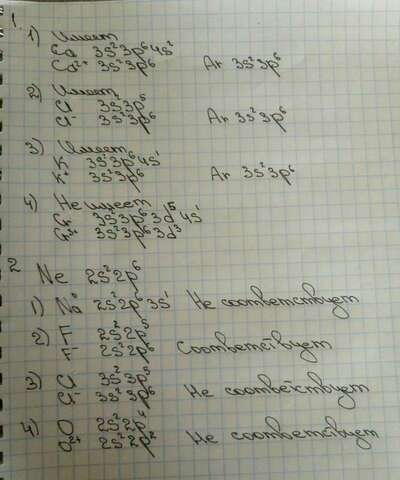 1.
1) Имеет
Ca 3s²3p⁶4s²
Ca²⁺ 3s²3p⁶ Ar 3s²3p⁶
2) Имеет
Cl 3s²3p⁵
Cl⁻ 3s²3p⁶ Ar 3s²3p⁶
3) Имеет
K 3s²3p⁶4s¹
K⁺ 3s²3p⁶ Ar 3s²3p⁶
4) Не имеет
Cr 3s²3p⁶3d⁵4s¹
Cr³⁺ 3s²3p⁶3d³
2 Ne 2s²2p⁶
1) Na⁰ 2s²2p⁶3s¹ Не соответствует
2) F 2s²2p⁵
F⁻ 2s²2p⁶ Соответствует
3) Cl 3s²3p⁵
Cl⁻ 3s²3p⁶ Не соответствует
4) O 2s²2p⁴
O²⁺ 2s²2p² Не соответствует